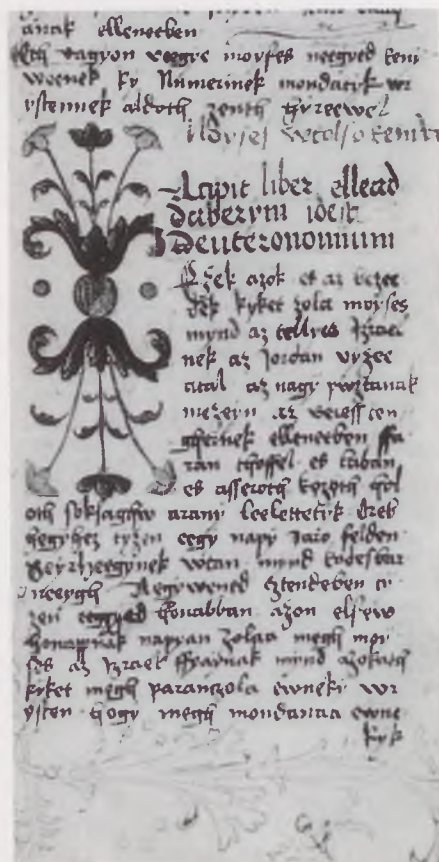 anak elleneeben
Itth vagyon veegre moyses neegyed keni
woenek ky Numerinek mondatyk wr
ystennek aldoth zenth
Moyses wtolso
Incipit liber ellead
daberym idest
deuteronomium
Ezek azok et az bezee
dek kyket zola moyses
mynd az tellyes Izrael
nek az Jordan vyzee
attal az nagy pwztanak
mezeyn az veress ten
ghernek elleneeben ffa
ran thoffel es laban
es asseroth kozoth hol
oth soksaghw arany leelettetyk Oreb
heghyhez tyzen eegy napy Jaro felden
Seyr heegynek wtan mynd Cadesbar
neeygh Neegywened Eztendeben ty
zen honabban azon elsew
honapnak napyan zolaa megh moy
ses az Izrael ffyaynak mynd azokath
kyket megh paranczola ewneky wr
ysten hogy megh mondanaa ewne
kyk